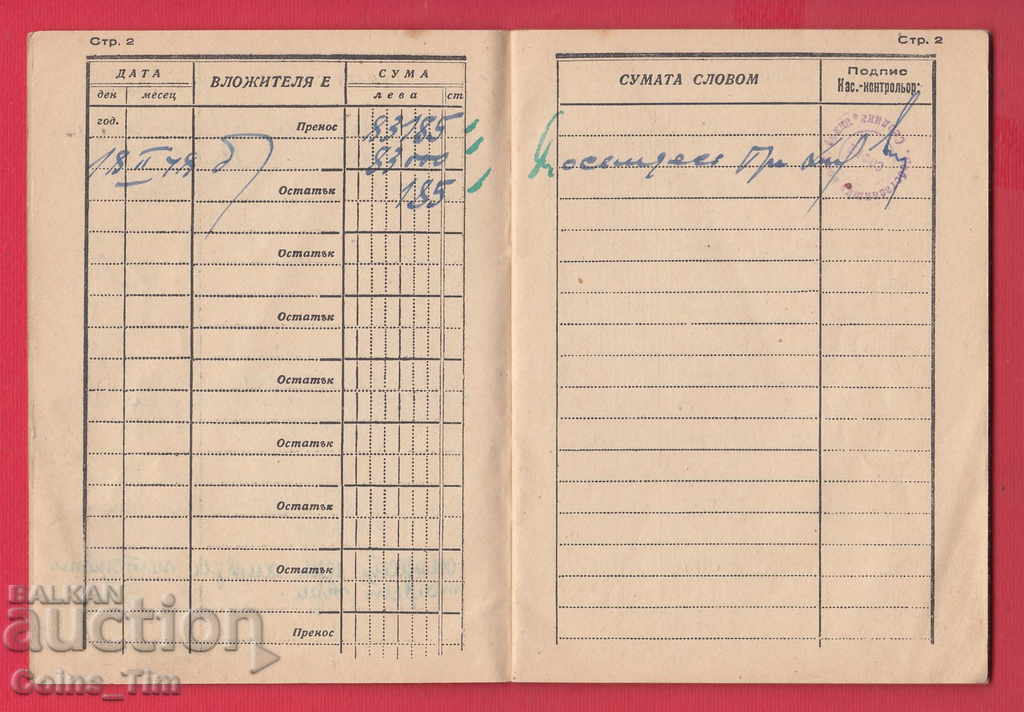 Стр. 2
ДАТА
ден месец
ВЛОЖИТЕЛЯ Е
СУМА
лева ст.
год. Пренос 83185
18 II 49 83000
Остатък 185
Остатък
Остатък
Остатък
Остатък
Остатък
Остатък
Пренос
Стр. 2
СУМАТА СЛОВОМ
Подпис
Кас.-контрольор:
осемдесет три хил
BALKAN
auction
Coins_Tim